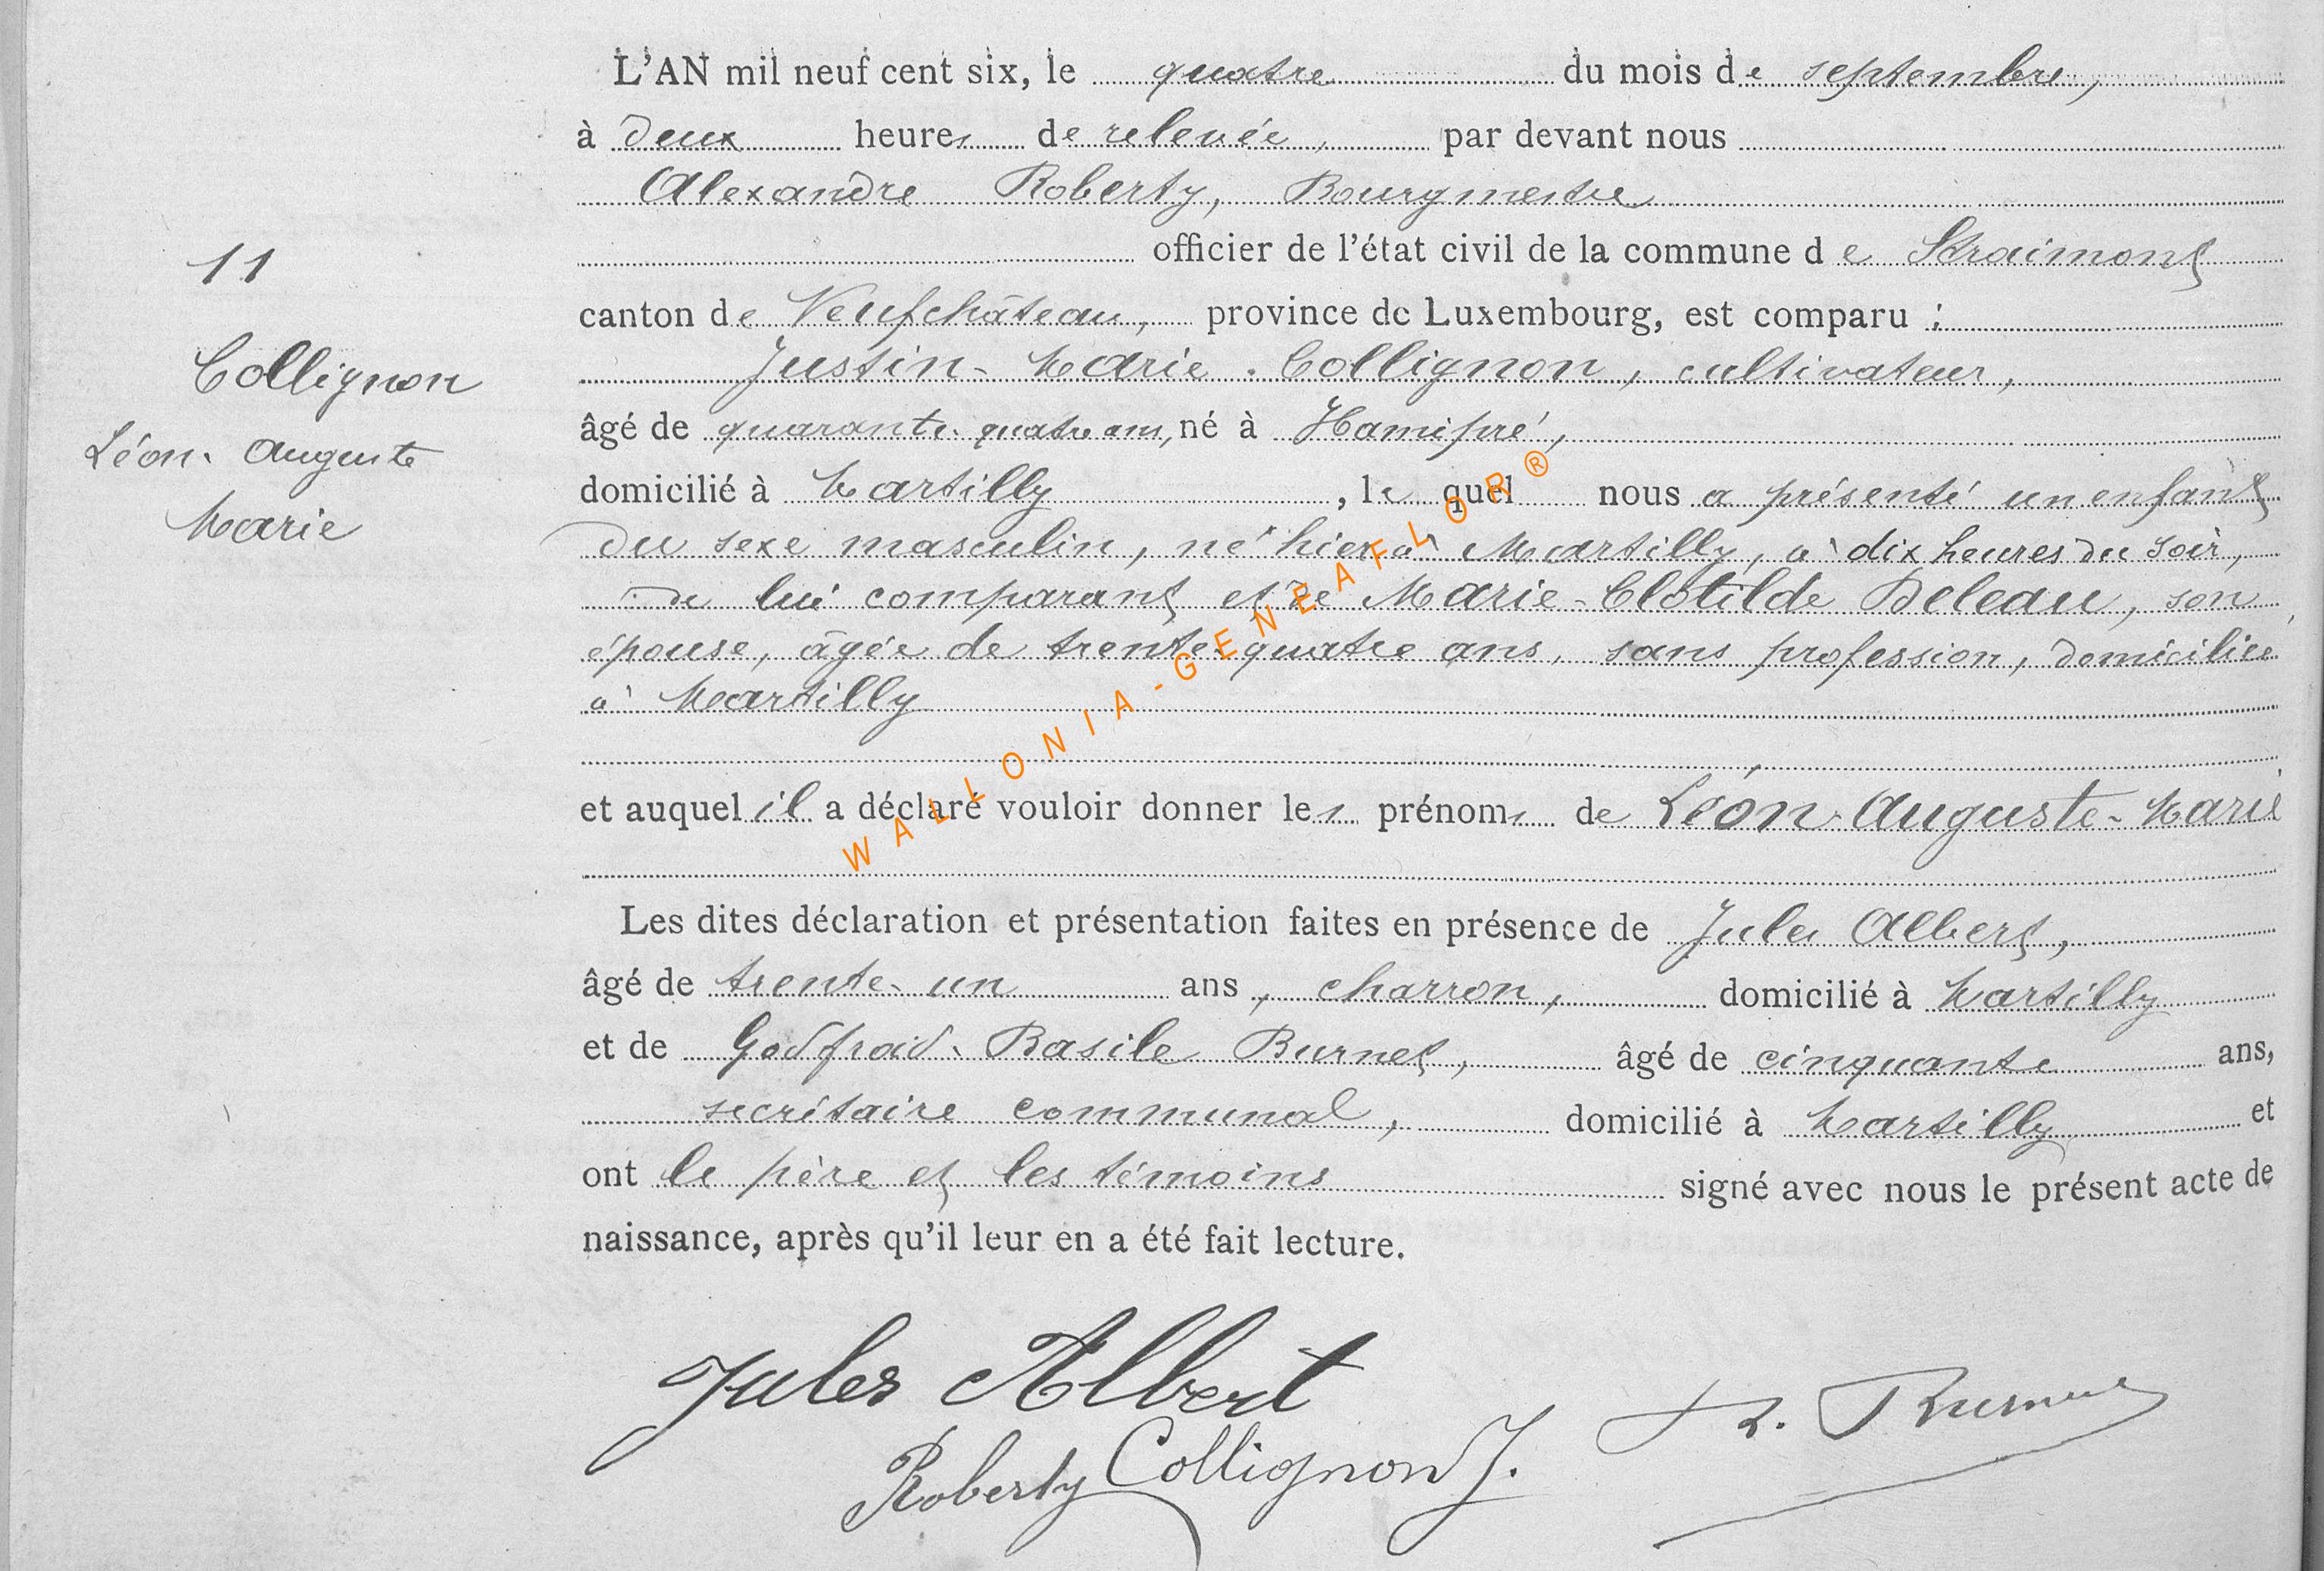 L'AN mil neuf cent six, le quatre du mois de septembre,
à deux heures de relevée, par devant nous
Alexandre Roberty, Bourgmestre
officier de l'état civil de la commune de Straimont
11
canton de Neufchâteau, province de Luxembourg, est comparu :
Collignon
Justin-Marie Collignon, cultivateur,
âgé de quarante-quatre ans, né à Hamipré,
Léon-Auguste
domicilié à Martilly, lequel nous a présenté un enfant
Marie
du sexe masculin, né hier à Martilly, à dix heures du soir,
de lui comparant et de Marie-Clotilde Deleau, son
épouse, âgée de trente-quatre ans, sans profession, domiciliée
à Martilly
et auquel il a déclaré vouloir donner les prénoms de Léon-Auguste-Marie
Les dites déclaration et présentation faites en présence de Jules Albert,
âgé de trente-un ans, charron, domicilié à Martilly
et de Godfroid-Basile Burnet, âgé de cinquante ans,
secrétaire communal, domicilié à Martilly et
ont le père et les témoins signé avec nous le présent acte de
naissance, après qu'il leur en a été fait lecture.
Jules Albert
Roberty Collignon J.
WALLONIA-GENEAFLOR®